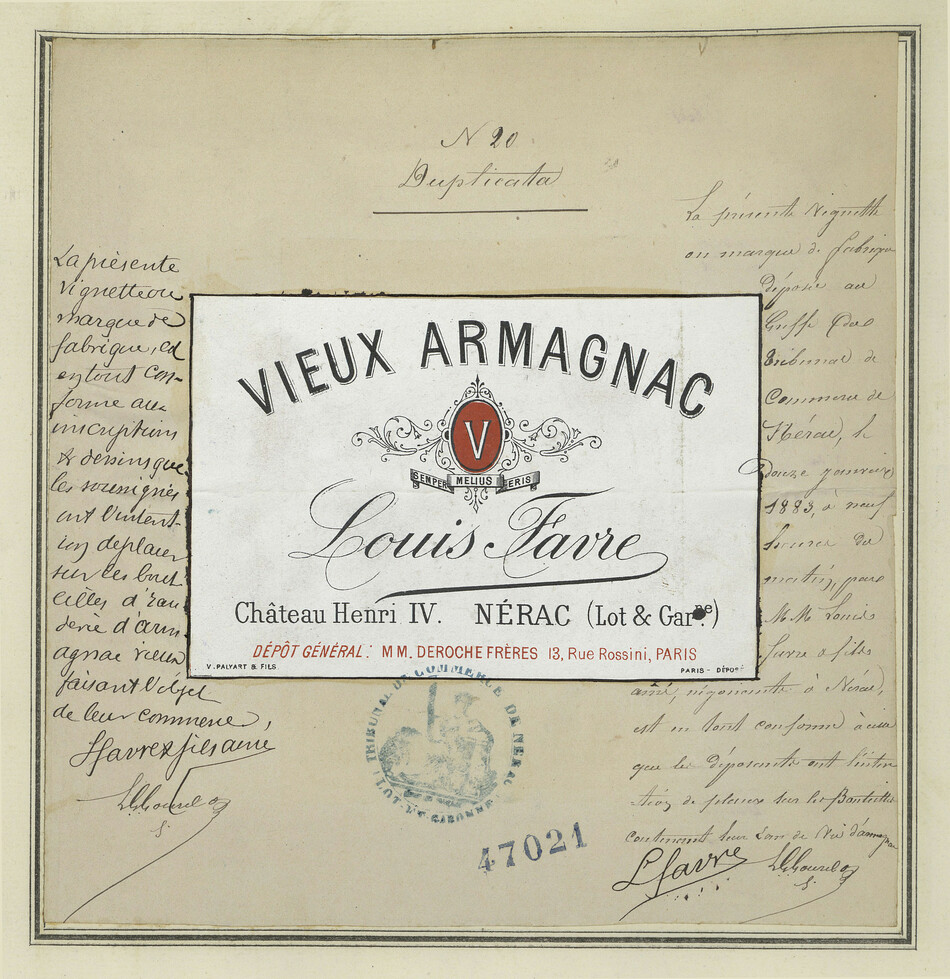 N 20
Duplicata
La présente
vignette ou
marque de
fabrique, est
en tout con-
forme aux
inscriptions
& dessins que
les soussignés
ont l'intent-
ion de placer
sur les bout
eilles d'eau
de vie d'arm
agnac vieux
faisant l'objet
de leur commerce,
L Favre & fils ainé
VIEUX ARMAGNAC
V
SEMPER MELIUS ERIS
Louis Favre
Château Henri IV. NÉRAC (Lot & Gar.ne)
DÉPÔT GÉNÉRAL: MM. DEROCHE FRÈRES 13, Rue Rossini, PARIS
V. PALYART & FILS. PARIS - DÉPOSÉ
La présente Vignette
ou marque de fabrique
déposée au
Greffe du
Tribunal de
Commerce de
Nérac, le
douze janvier
1883, à neuf
heures du
matin, par
MM. Louis
Favre & fils
ainé, négociants à Nérac,
est en tout conforme à celle
que les déposants ont l'inten
tion de placer sur les Bouteilles
contenant leur Eau de Vie d'armagnac
L Favre
TRIBUNAL DE COMMERCE DE NERAC
(LOT-ET-GARONNE)
47021